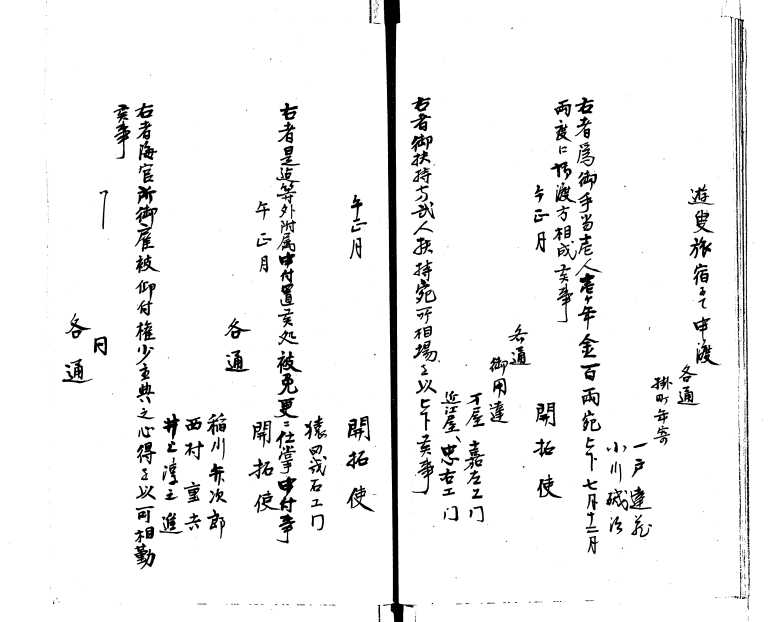 遊叟旅宿ニて申渡
各通
掛町年寄
一戸達蔵
小川誠治
右者為御手当老人老ヶ年金百両宛被下七月十二月
両度に渡方相成候事
午正月
開拓使
各通
御用達
万屋嘉左エ門
近江屋忠右エ門
右者御扶持方弐人扶持宛所相場を以被下候事
午正月
開拓使
猿田茂右エ門
右者是迄等外附属申付置候処被免更ニ仕掌申付事
午正月
開拓使
各通
稲川弥次郎
西村重吉
井上淳之進
右者海官所御雇被仰付権少主典之心得を以可相勤
候事
月
各通